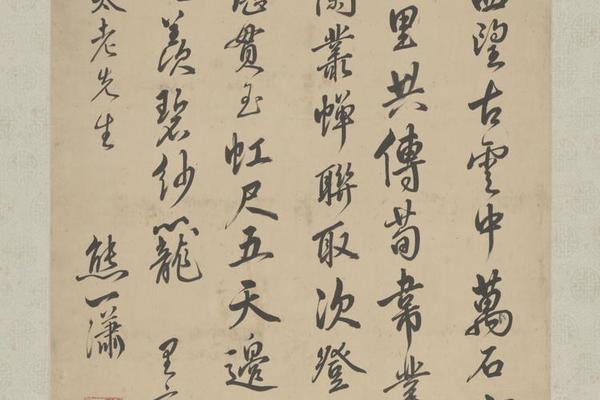 望古雲中萬石
里共傳荀韋業
叢蟬聯取次登
貫玉虹尺五天邊
羨碧紗籠 里
老先生
熊一瀟